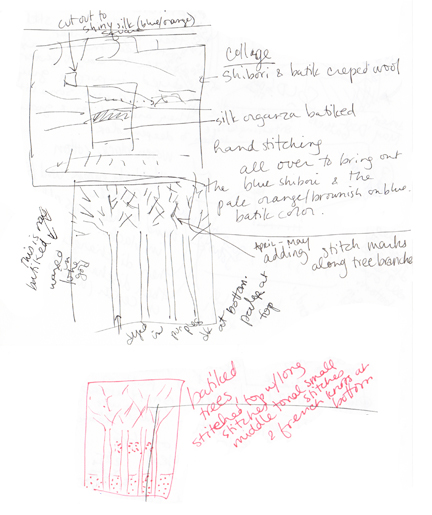 cut out to
shiny silk (blue/orange)
square
collage
shibori & batik creped wool
silk organza batiked
hand stitching
all over to bring out
the blue shibori & the
pale orange/brownish on blue.
batik color.
April - May
adding stitch marks
along tree branche
This is
batiked
dyed in
at bottom.
at
top
batiked
trees,
stitches top w/long
stitches
middle tonal small
stitches
& french knots at
bottom